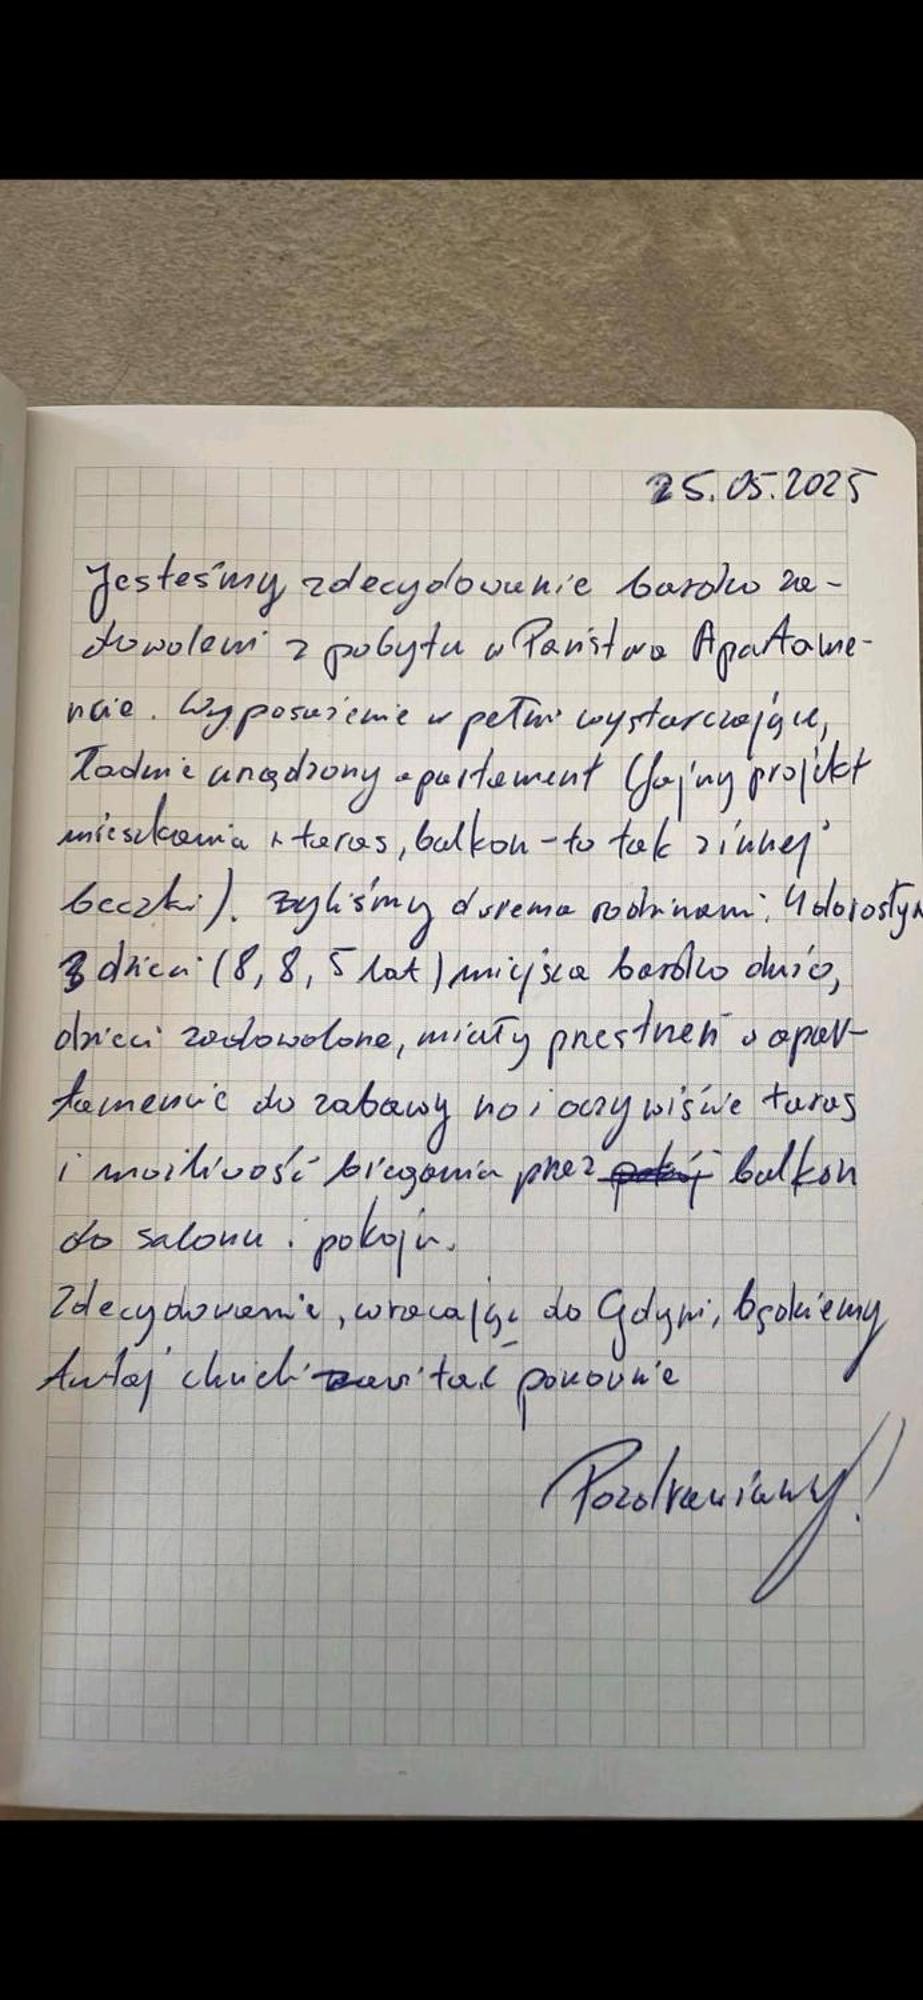 25.05.2025
Jesteśmy zdecydowanie bardzo za-
dowoleni z pobytu w Państwa Apartame-
ncie. Wyposażenie w pełni wystarczające,
ładnie urządzony apartament (fajny projekt
mieszkania + taras, balkon - to tak z innej
beczki). Byliśmy dwiema rodzinami, 4 dorosłych
3 dzieci (8, 8, 5 lat) miejsca bardzo dużo,
dzieci zadowolone, miały przestrzeń w apar-
tamencie do zabawy no i oczywiście taras
i możliwość biegania przez balkon
do salonu i pokoju.
Zdecydowanie, wracając do Gdyni, będziemy
tutaj chcieli zawitać ponownie
Pozdrawiamy!